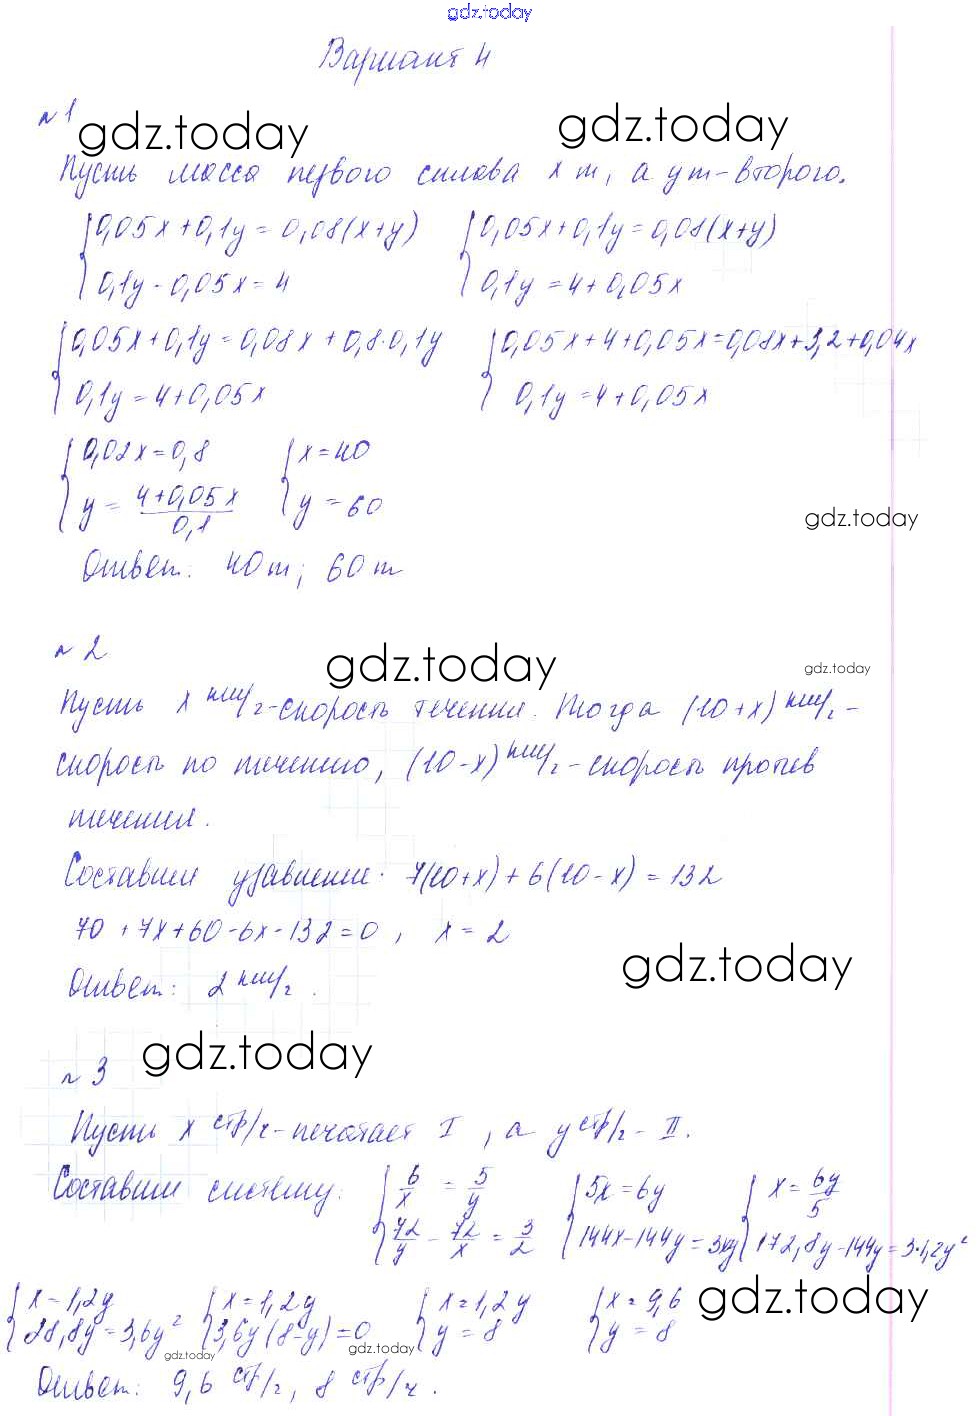 gdz.today
Вариант 4
№1
gdz.today gdz.today
Пусть масса первого сплава x т, а y т - второго.
{0,05x + 0,1y = 0,08(x+y) {0,05x + 0,1y = 0,08(x+y)
{0,1y - 0,05x = 4 {0,1y = 4 + 0,05x
{0,05x + 0,1y = 0,08x + 0,8·0,1y {0,05x + 4 + 0,05x = 0,08x + 3,2 + 0,04x
{0,1y = 4 + 0,05x {0,1y = 4 + 0,05x
{0,02x = 0,8 {x = 40
{y = (4 + 0,05x)/0,1 {y = 60
gdz.today
Ответ: 40 т; 60 т
№2
gdz.today gdz.today
Пусть x км/г - скорость течения. Тогда (10+x) км/г -
скорость по течению, (10-x) км/г - скорость против
течения.
Составим уравнение: 7(10+x) + 6(10-x) = 132
70 + 7x + 60 - 6x - 132 = 0, x = 2
gdz.today
Ответ: 2 км/г.
gdz.today
№3
Пусть x стр/ч - печатает I, а y стр/г - II.
Составим систему: {6/x = 5/y {5x = 6y {x = 6y/5
{72/y - 72/x = 3/2 {144x - 144y = 3xy {172,8y - 144y = 3·1,2y²
gdz.today
{x = 1,2y {x = 1,2y {x = 1,2y {x = 9,6
{28,8y = 3,6y² {3,6y(8-y) = 0 {y = 8 {y = 8
gdz.today gdz.today
Ответ: 9,6 стр/г, 8 стр/ч.